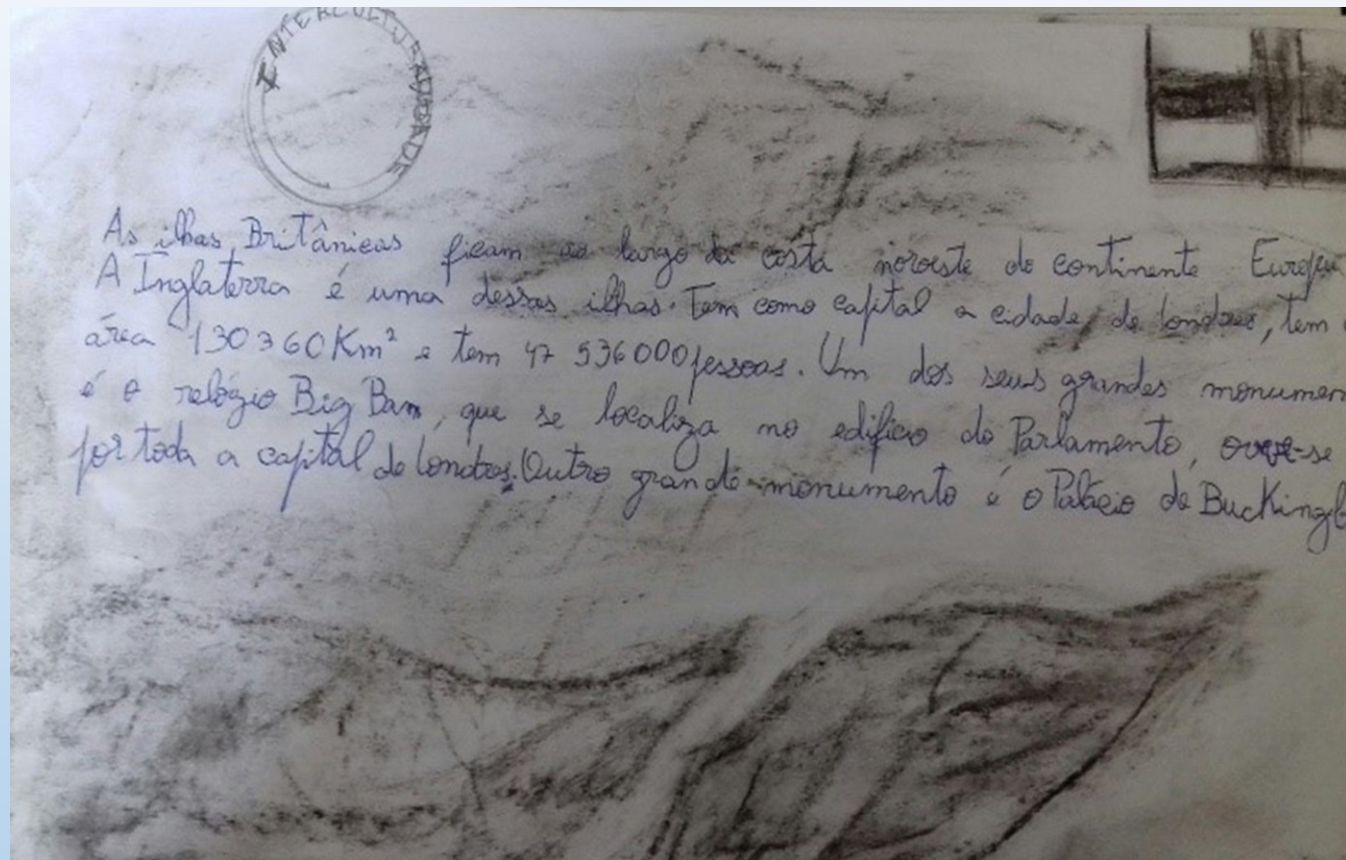 INTERCULTURALIDADE
As ilhas Britânicas ficam ao largo da costa noroeste do continente Europeu
A Inglaterra é uma dessas ilhas. Tem como capital a cidade, de londres, tem
área 130360Km² e tem 47 536000 pessoas. Um dos seus grandes monumen
é o relógio Big Ban, que se localiza no edifício do Parlamento, ouve-se
por toda a capital de londres. Outro grande monumento é o Palácio de Buckingh